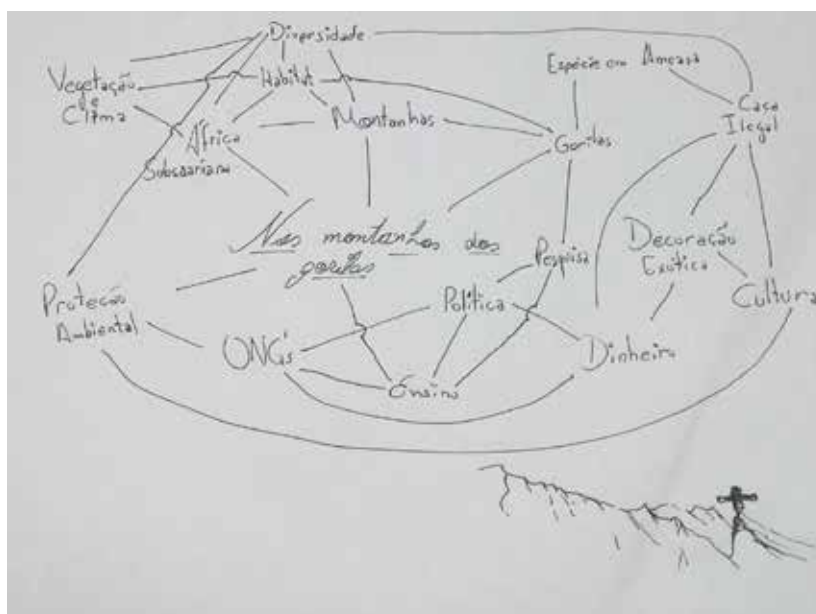 Diversidade
Vegetação
e
Clima
Habitat
Espécie em Ameaça
Caça
Ilegal
África
Subsaariana
Montanhas
Gorilas
Nas montanhas dos
gorilas
Pesquisa
Decoração
Exótica
Proteção
Ambiental
Política
Cultura
ONG's
Ensino
Dinheiro